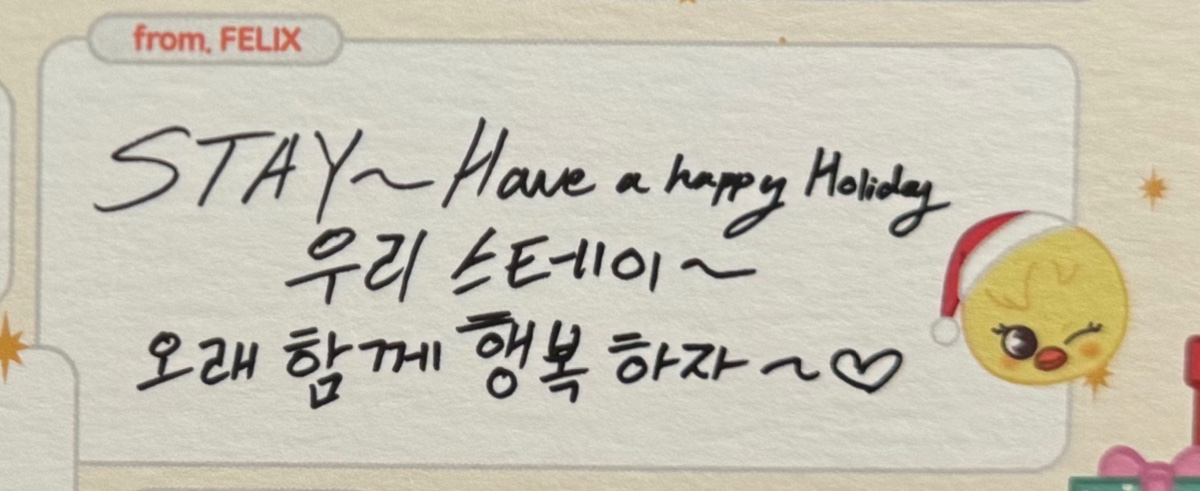 from. FELIX
STAY~ Have a happy Holiday
우리 스테이~
오래 함께 행복 하자~♡